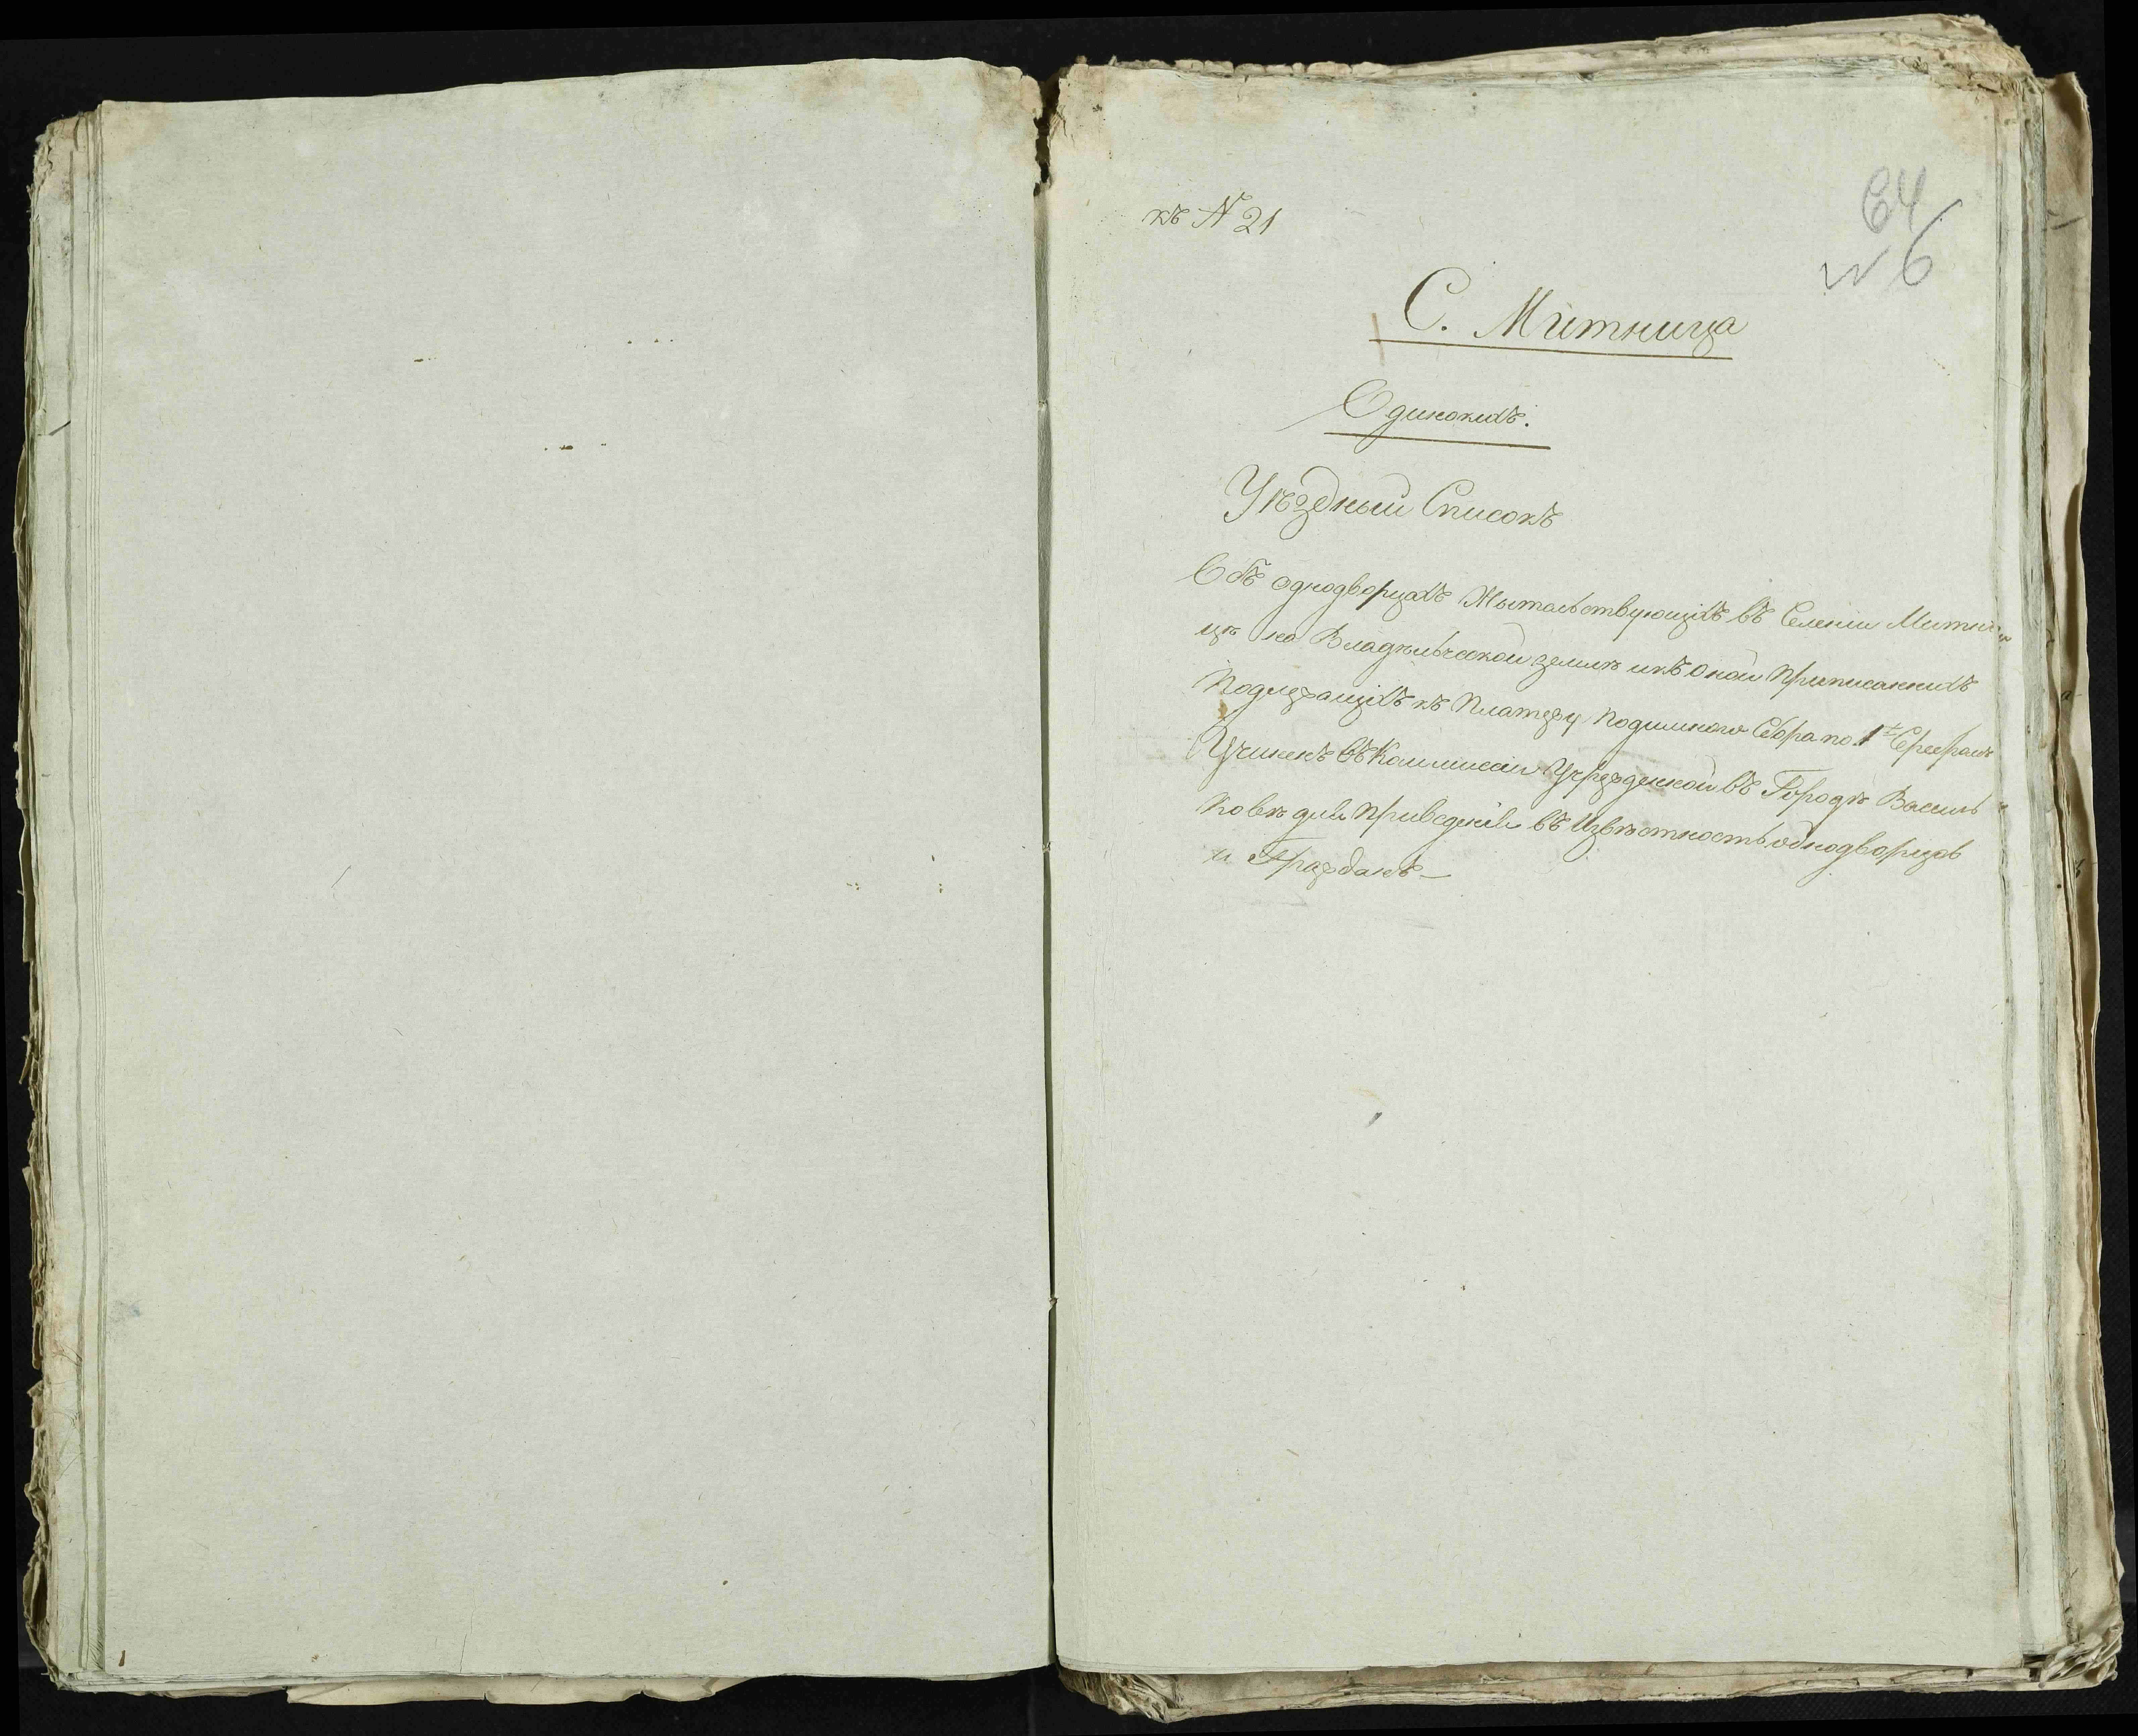 къ N 21
64
6
С. Митница
Одинокихъ.
Уѣздный Списокъ
Объ однодворцахъ Жытельствующихъ въ Селеніи Митни
цѣ на Владѣльческой землѣ икъ оной приписанныхъ
Подлежащихъ къ Платежу Подымного Сбора по 1 Серебромъ
Учиненъ въ Коммисіи Учрежденной въ Городѣ Василь
ковѣ для приведенія въ Извѣстность однодворцовъ
и Гражданъ —